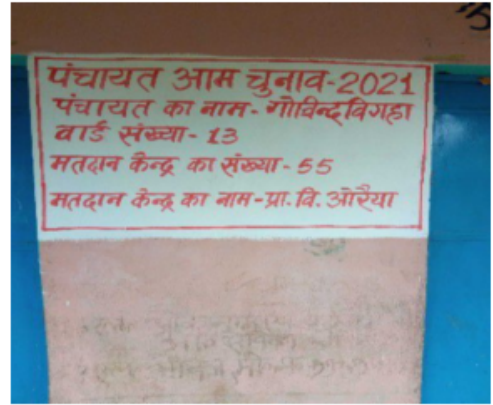 पंचायत आम चुनाव-2021
पंचायत का नाम- गोविन्द विगहा
वार्ड संख्या- 13
मतदान केन्द्र का संख्या- 55
मतदान केन्द्र का नाम-प्रा. वि. ओरैया